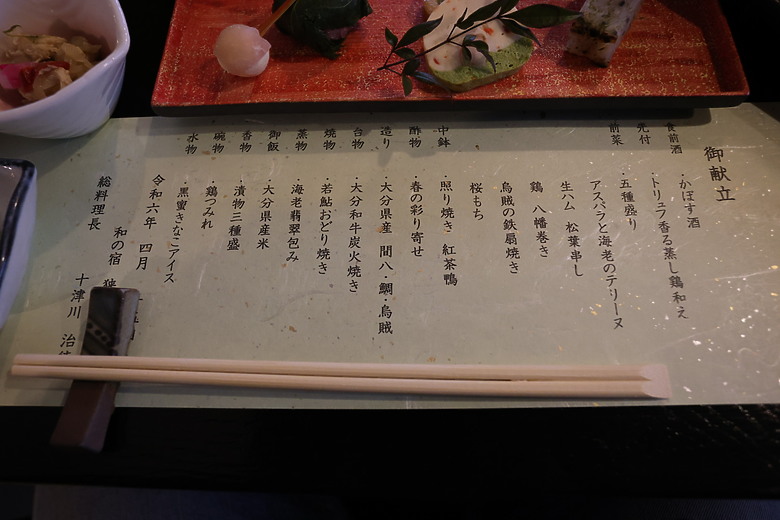 御献立
食前酒 ・かぼす酒
先付 ・トリュフ香る蒸し鶏和え
前菜 ・五種盛り
アスパラと海老のテリーヌ
生ハム 松葉串し
鶏 八幡巻き
烏賊の鉄扇焼き
桜もち
中鉢 ・照り焼き 紅茶鴨
酢物 ・春の彩り寄せ
造り ・大分県産 間八・鯛・烏賊
台物 ・大分和牛炭火焼き
焼物 ・若鮎おどり焼き
蒸物 ・海老翡翠包み
御飯 ・大分県産米
香物 ・漬物三種盛
碗物 ・鶏つみれ
水物 ・黒蜜きなこアイス
令和六年 四月
和の宿
総料理長 十津川 治